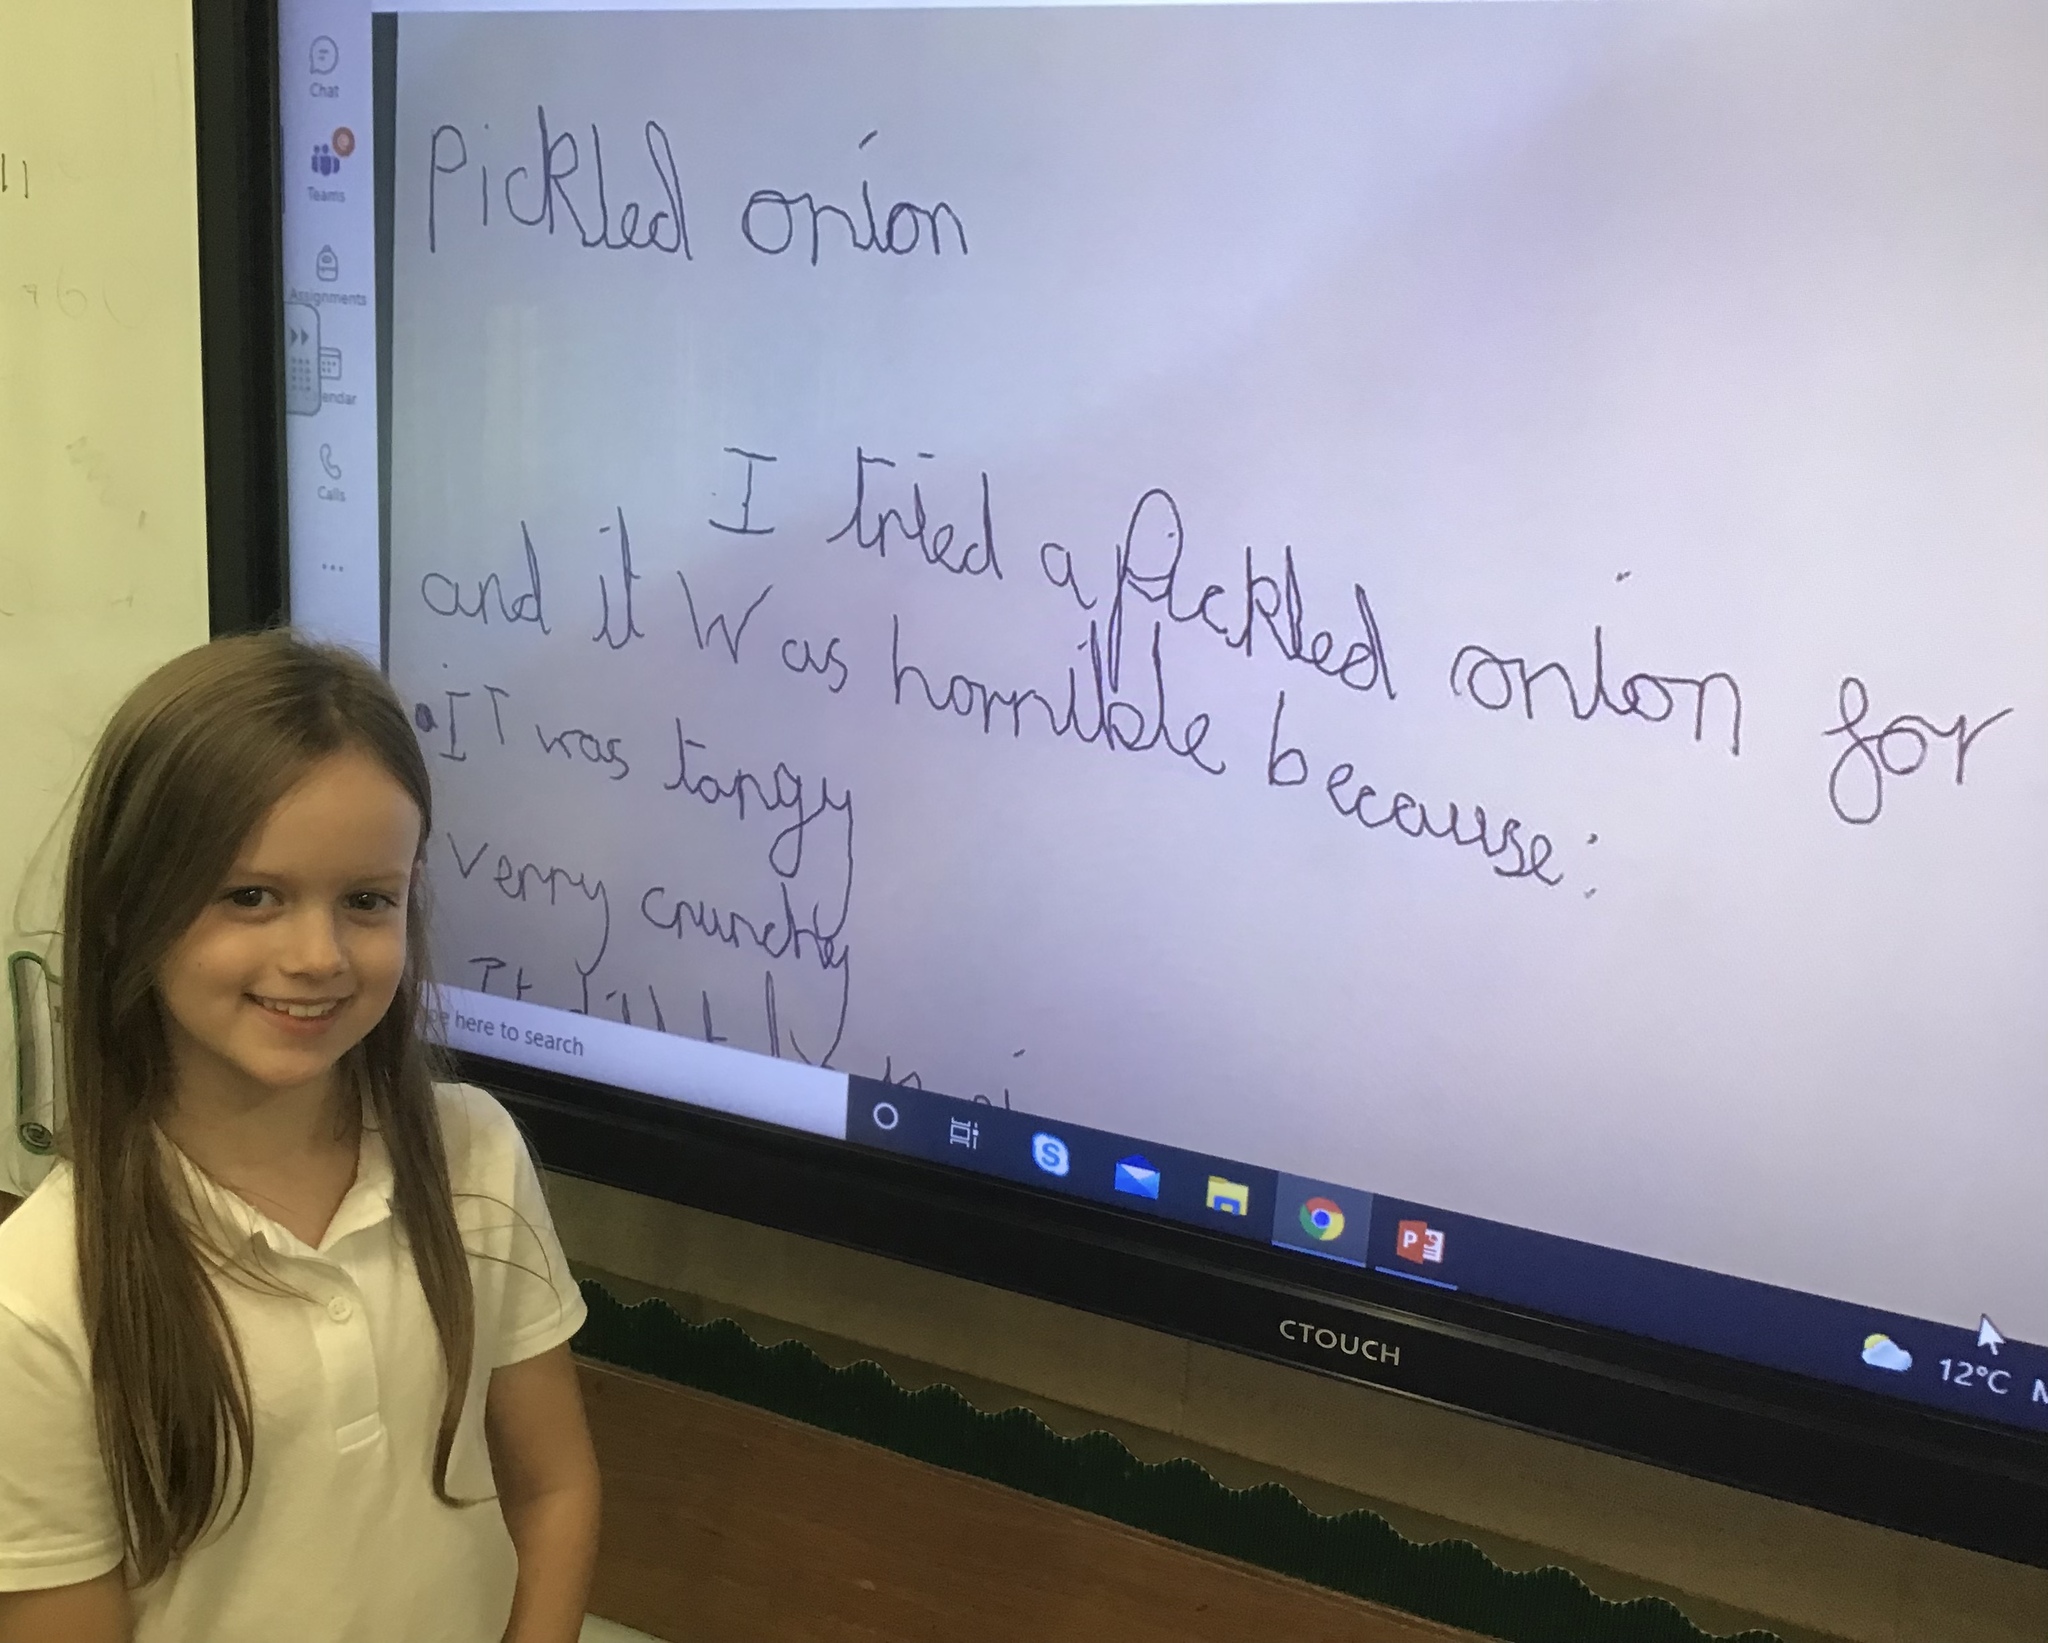 Chat
Teams
Assignments
endar
Calls
Pickled onion
I tried a Pickled onion for
and it Was horrible because:
IT was tangy
verry crunchy
It
here to search
CTOUCH
12°C